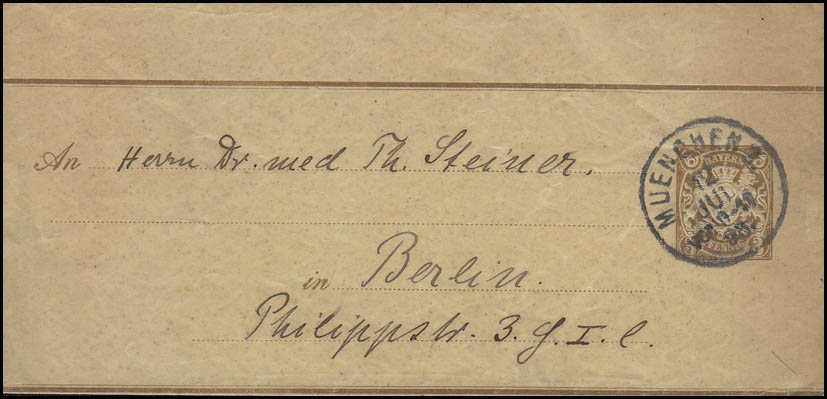 An Herrn Dr. med Th. Steiner.
in Berlin.
Philippstr. 3. G. I. l.
MUENCHEN
BAYERN
12
JUL
PFENNIG
3